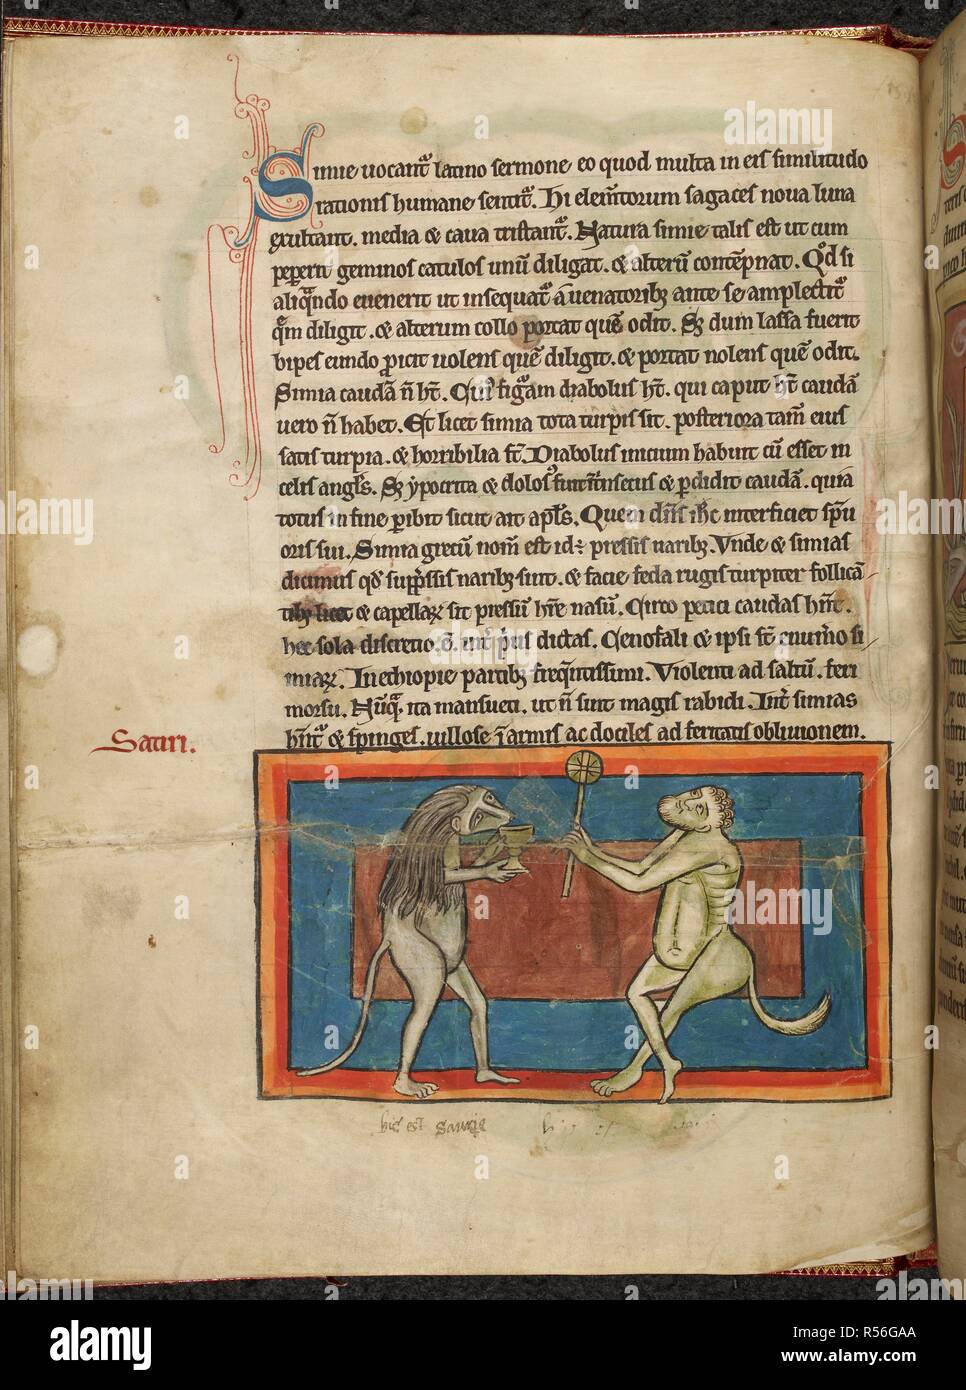 Simie uocant᷑ latino sermone eo quod multa in eis similitudo
rationis humane sentit᷑. Hi elemtorum sagaces noua luna
exultant. media & caua tristant᷑. Natura simie talis est ut cum
peperit geminos catulos unū diligat. & alterū contēpnat. Qd si
aliqndo euenerit ut insequat᷑ a uenatoribꝫ ante se amplectit᷑
qm diligit. & alterum collo portat quē odit. Sꝫ dum lassa fuerit
bipes eundo ꝓicit uolens quē diligit. & portat nolens quē odit.
Simia caudā n̄ ht. Cui᷒ figam diabolus ht. qui caput ht caudā
uero n̄ habet. Et licet simia tota turpis sit. posteriora tam̄ eius
satis turpia. & horribilia st̄. Diabolus inicium habuit cū esset in
celis angls. Sꝫ ypocrita & dolos᷒ fuit intrīsecus & ꝑdidit caudā. quia
totus in fine ꝑibit sicut ait apls. Quem dn̄s ihc interficiet spū
oris sui. Simia grecū nom̄ est id÷ pressis naribꝫ. Vnde & simias
dicimus qd supp̄ssis naribꝫ sint. & facie feda rugis turpiter follicā
tibꝫ licet & capellaꝝ sit pressū hr̄e nasū. Circo petici caudas hn̄t.
hec sola discretio. ē. int᷑ p̄us dictas. Cenofali & ipsi st̄ e num̄o si
miaꝝ. In ethiopie partibꝫ freqntissimi. Violenti ad saltū. feri
morsu. Nūqa ita mansueti. ut n̄ sint magis rabidi. Int᷑ simias
hn̄t᷑ & spinges. uillose ī armis ac dociles ad feritatis obliuionem.
Satiri.
hic est
alamy
Image ID: R56GAA
www.alamy.com